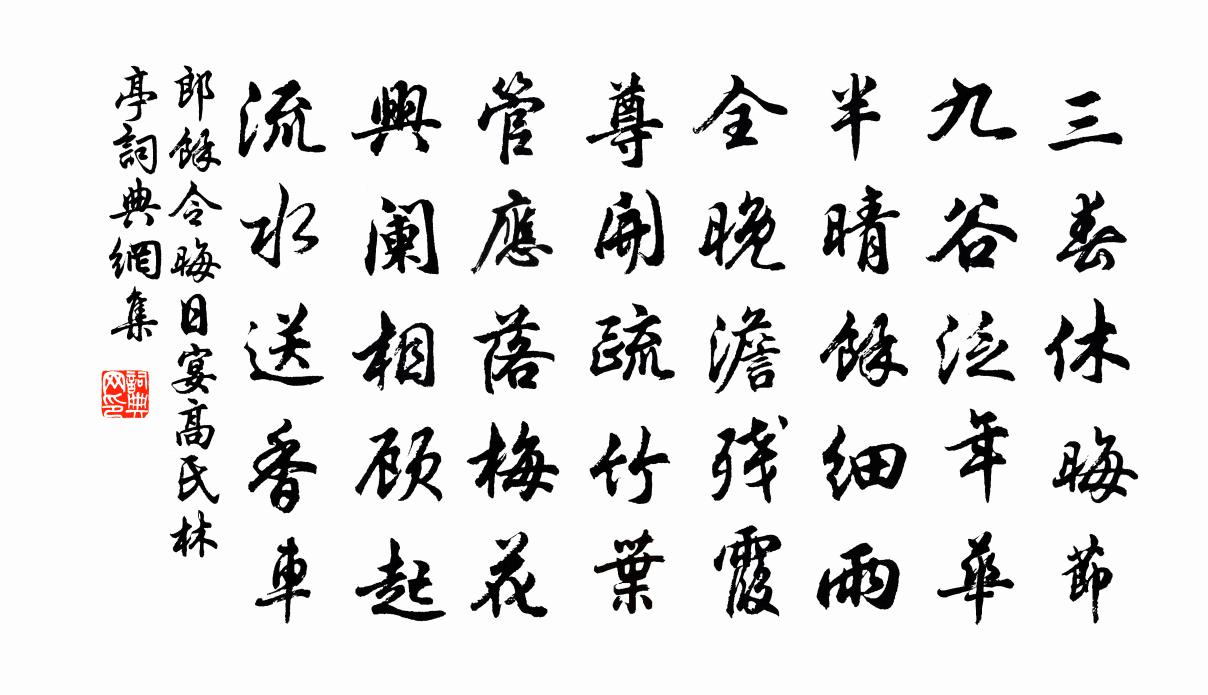 三春休晦節
九谷泛年華
半晴餘細雨
全晚澹殘霞
尊開疏竹葉
管應落梅花
興闌相顧起
流水送香車
郎餘令晦日宴高氏林
亭詞典網集
詞典
网印